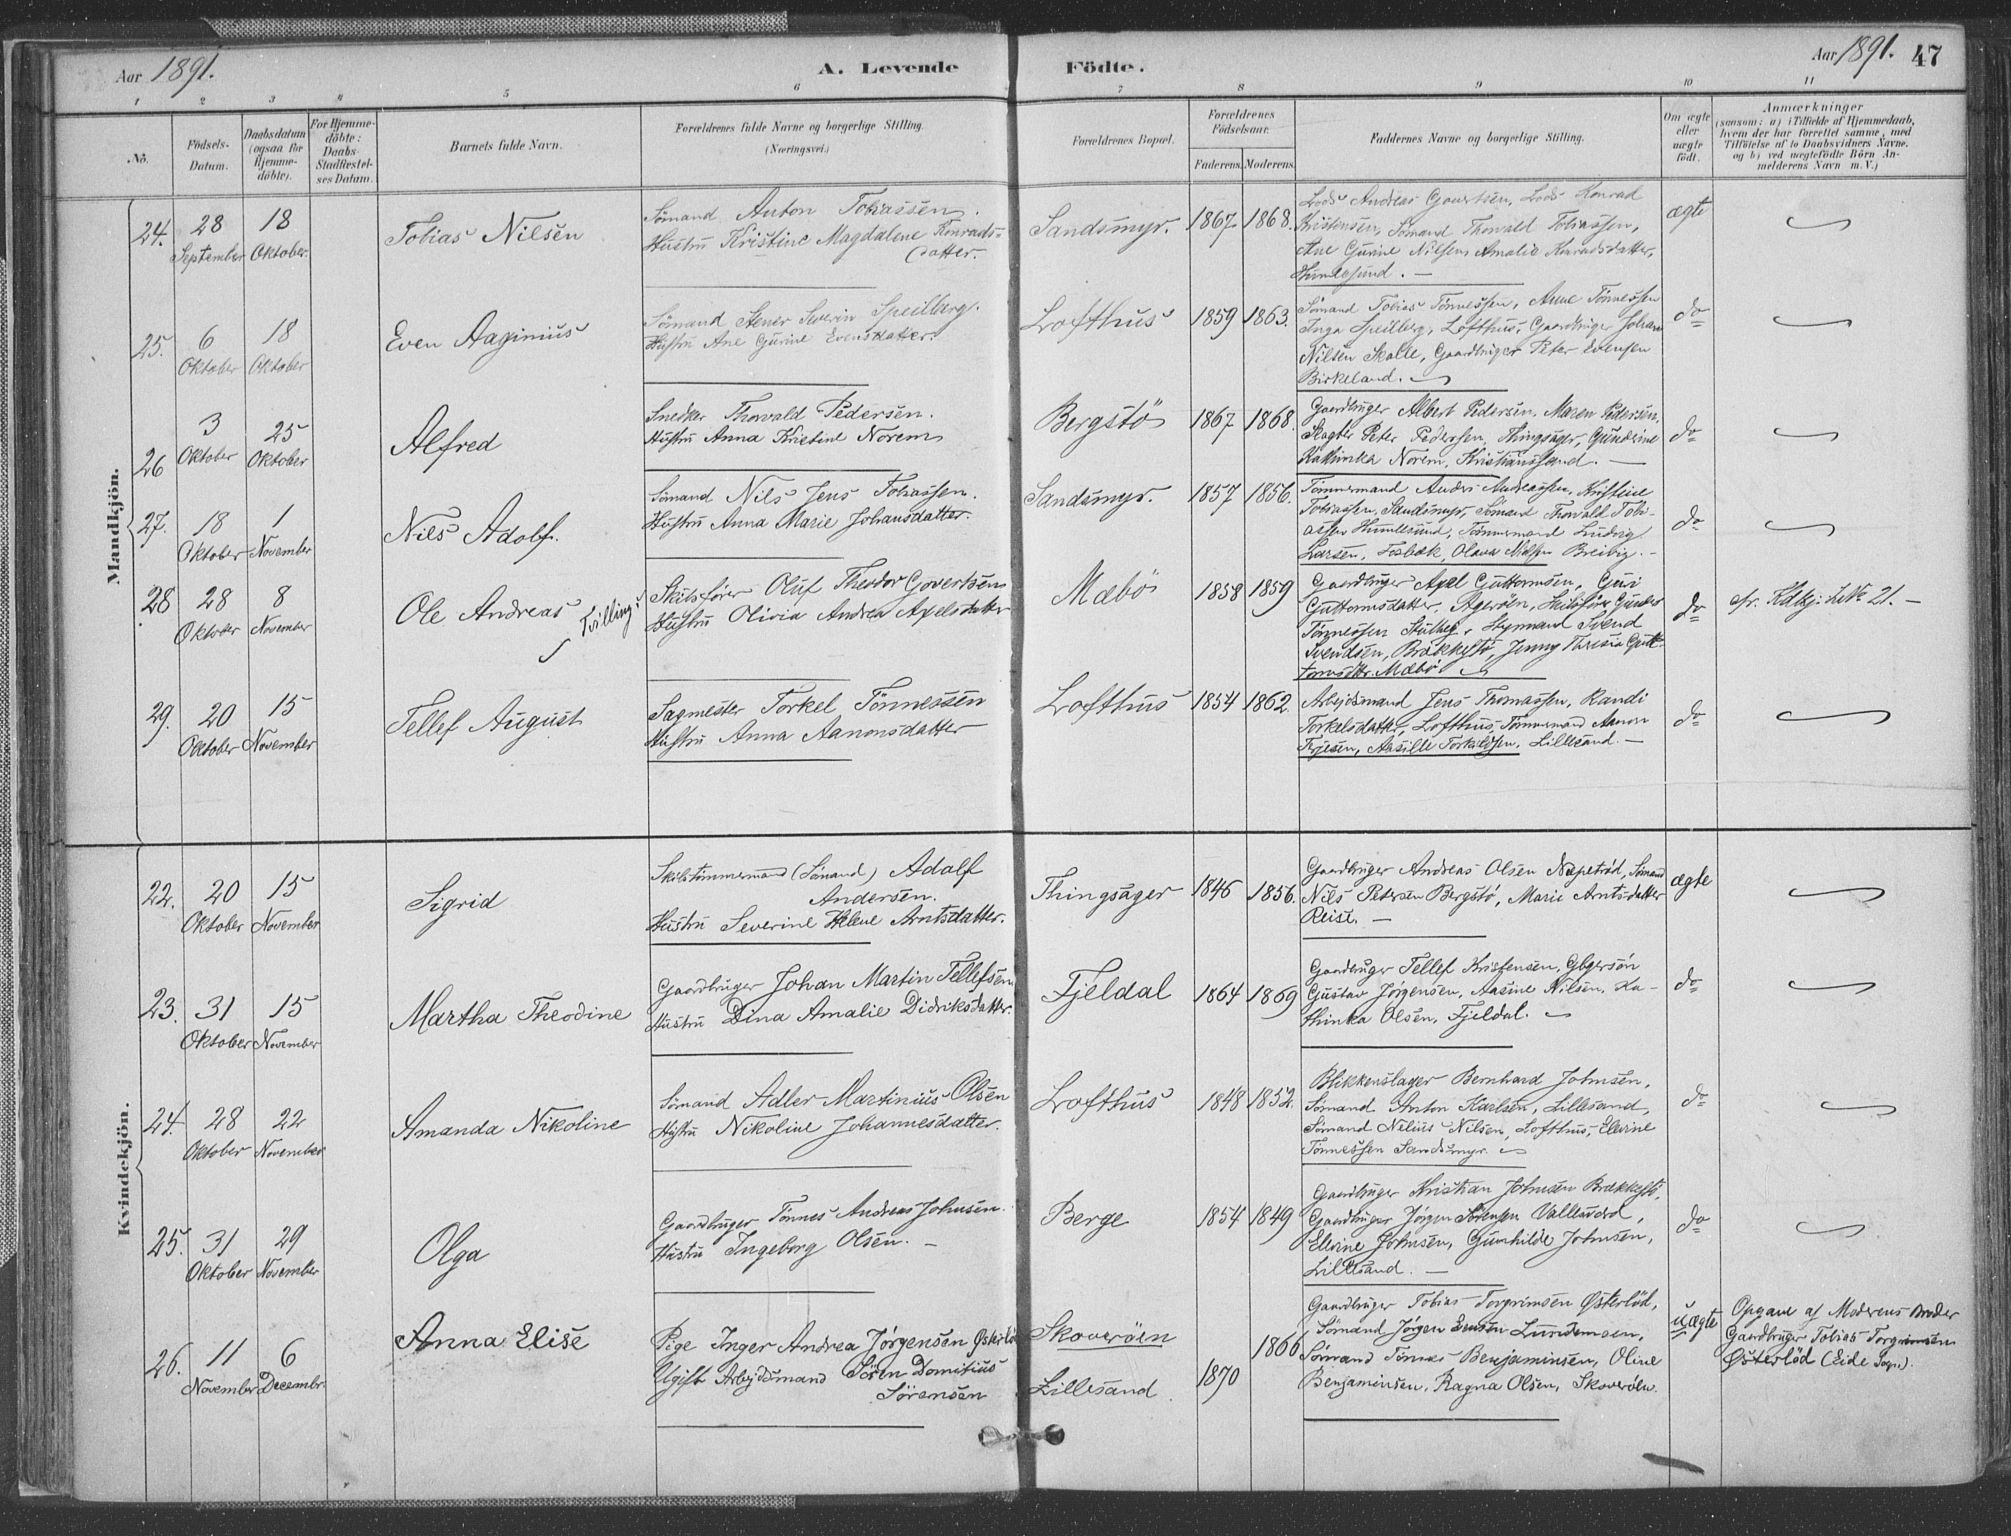 Aar 1891.
A. Levende Födte.
Aar 1891. 47
1 2 3 4 5 6 7 8 9 10 11
No.
Födsels-
Datum.
Daabsdatum
(ogsaa for
Hjemme-
döbte).
For Hjemme-
döbte:
Daabs-
Stadfæstel-
ses Datum.
Barnets fulde Navn.
Forældrenes fulde Navne og borgerlige Stilling.
(Næringsvei.)
Forældrenes Bopæl.
Forældrenes
Födselsaar.
Faderens. Moderens.
Faddernes Navne og borgerlige Stilling.
Om ægte
eller
uægte
født.
Anmærkninger
(saasom: a) i Tilfælde af Hjemmedaab,
hvem der har forrettet samme, med
Tilföielse af to Daabsvidners Navne.
og b) ved uægtefödte Börn An-
melderens Navn m. V.)
Mandkjön.
24. 28 September 18 Oktober.
Tobias Nilsen
Sömand Anton Tobiassen.
Hustru Kristine Magdalene Konrads-
datter.
Sandsmyr. 1867 1868.
Lods Andreas Govertsen, Lods Konrad
Kristensen, Sömand Thorvald Tobiassen,
Ane Gurine Nilsen, Amalie Konradsdatter,
Humlesund. —
ægte
25. 6 Oktober 18 Oktober
Even Aaginius
Sömand Stener Severin Speilberg.
Hustru Ane Gurine Evensdatter.
Lofthus 1859 1863.
Sömand Tobias Tönnessen, Anne Tönnessen
Inga Speilberg, Lofthus, Gaardbruger Johan
Nilsen Skolle, Gaardbruger Peter Evensen
Birkeland.
do
26 3 Oktober 25 Oktober
Alfred
Snedker Thorvald Pedersen.
Hustru Anna Kristine Norem
Bergstö 1867 1868.
Gaardbruger Albert Pedersen, Maren Pedersen,
Slagter Peter Pedersen, Thingsager, Gunderine
Kathinka Norem, Kristianssand. —
do
27. 18 Oktober 1 November
Nils Adolf.
Sömand Nils Jens Tobiassen.
Hustru Anna Marie Johansdatter.
Sandsmyr. 1857 1856.
Tömmermand Anders Andreassen, Kristine
Tobiassen, Sandsmyr, Sömand Thorvald Tobi-
assen Humlesund, Tömmermand Ludvig
Larsen, Fosbæk, Olava Nilsen Breivig. —
do
28. 28 Oktober 8 November
Ole Andreas Tvilling
Skibsförer Oluf Theodor Govertsen
Hustru Olivia Andrea Axelsdatter
Mæbö 1858 1859
Gaardbruger Axel Guttormsen, Guri
Guttormsdatter, Agerøen, Skibsförer Gunder
Tönnessen Stutheg, Styrmand Svend
Svendsen, Brækkestö, Jenny Theresia Gutt-
tormsdtr. Mæbö
do
cfr. Kdkj: No 21. —
29. 20 Oktober 15 November
Tellef August
Sagmester Torkel Tönnessen
Hustru Anna Aanonsdatter
Lofthus 1854 1862.
Arbejdsmand Jens Thomassen, Randi
Torkelsdatter, Lofthus, Tömmermand Aanon
Terjesen, Aasille Torkildsen, Lillesand. —
do
Kvindekjön.
22. 20 Oktober 15 November
Sigrid
Skibstömmermand (Sömand) Adolf
Andersen.
Hustru Severine Helene Arntsdatter.
Thingsager 1846 1856.
Gaardbruger Andreas Olsen Næpetröd, Sömand
Nils Pedersen Bergstö, Marie Arntsdatter
Reise. —
ægte
23. 31 Oktober 15 November
Martha Theodine
Gaardbruger Johan Martin Tellefsen
Hustru Dina Amalie Didriksdatter.
Fjeldal 1864 1869
Gaardbruger Tellef Kristensen,
Gustav Jörgensen, Aasine Nilsen, Ka-
thinka Olsen, Fjeldal.
do
24. 28 Oktober 22 November
Amanda Nikoline
Sömand Adler Martinius Olsen
Hustru Nikoline Johannesdatter.
Lofthus 1848 1852.
Blikkenslager Bernhard Johnsen,
Sömand Anton Karlsen, Lillesand,
Sömand Nilius Nilsen, Lofthus, Elevine
Tönnessen Sandsmyr.
do
25. 31 Oktober 29 November
Olga
Gaardbruger Tönnes Andreas Johnsen.
Hustru Ingeborg Olsen. —
Berge 1854 1849
Gaardbruger Kristian Johnsen Brækkestö,
Gaardbruger Jörgen Sörensen Vallesverd,
Ellevine Johnsen, Gunhilde Johnsen,
Lillesand. —
do
26. 11 November 6 December.
Anna Elise
Pige Inger Andrea Jörgensen Österlöd
Ugift Arbejdsmand Sören Domitius
Sörensen
Skoveröen
Lillesand
1870 1866
Gaardbruger Tobias Torgrimsen Österlöd,
Sömand Jörgen Evensen Lundemoen,
Sömand Tönnes Benjaminsen, Oline
Benjaminsen, Ragna Olsen, Skoveröen.
uægte
Opgave af Moderens Broder
Gaardbruger Tobias Torgrimsen
Österlöd (Eide Sogn).